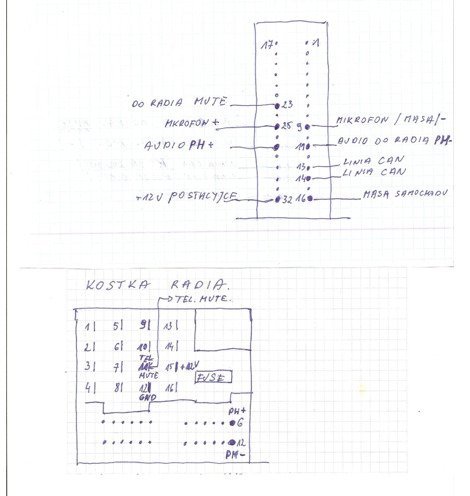 17 1
DO RADIA MUTE 23
MIKROFON + 25 9 MIKROFON / MASA / -
AUDIO PH + 11 AUDIO DO RADIA PH-
13 LINIA CAN
14 LINIA CAN
+12V POSTACYJCE 32 16 MASA SAMOCHODU
KOSTKA RADIA.
TEL. MUTE.
1 5 9 13
2 6 10 14
TEL
3 7 11 15 +12V
MUTE
4 8 12 16 FUSE
GND
PH+
6
12
PH-